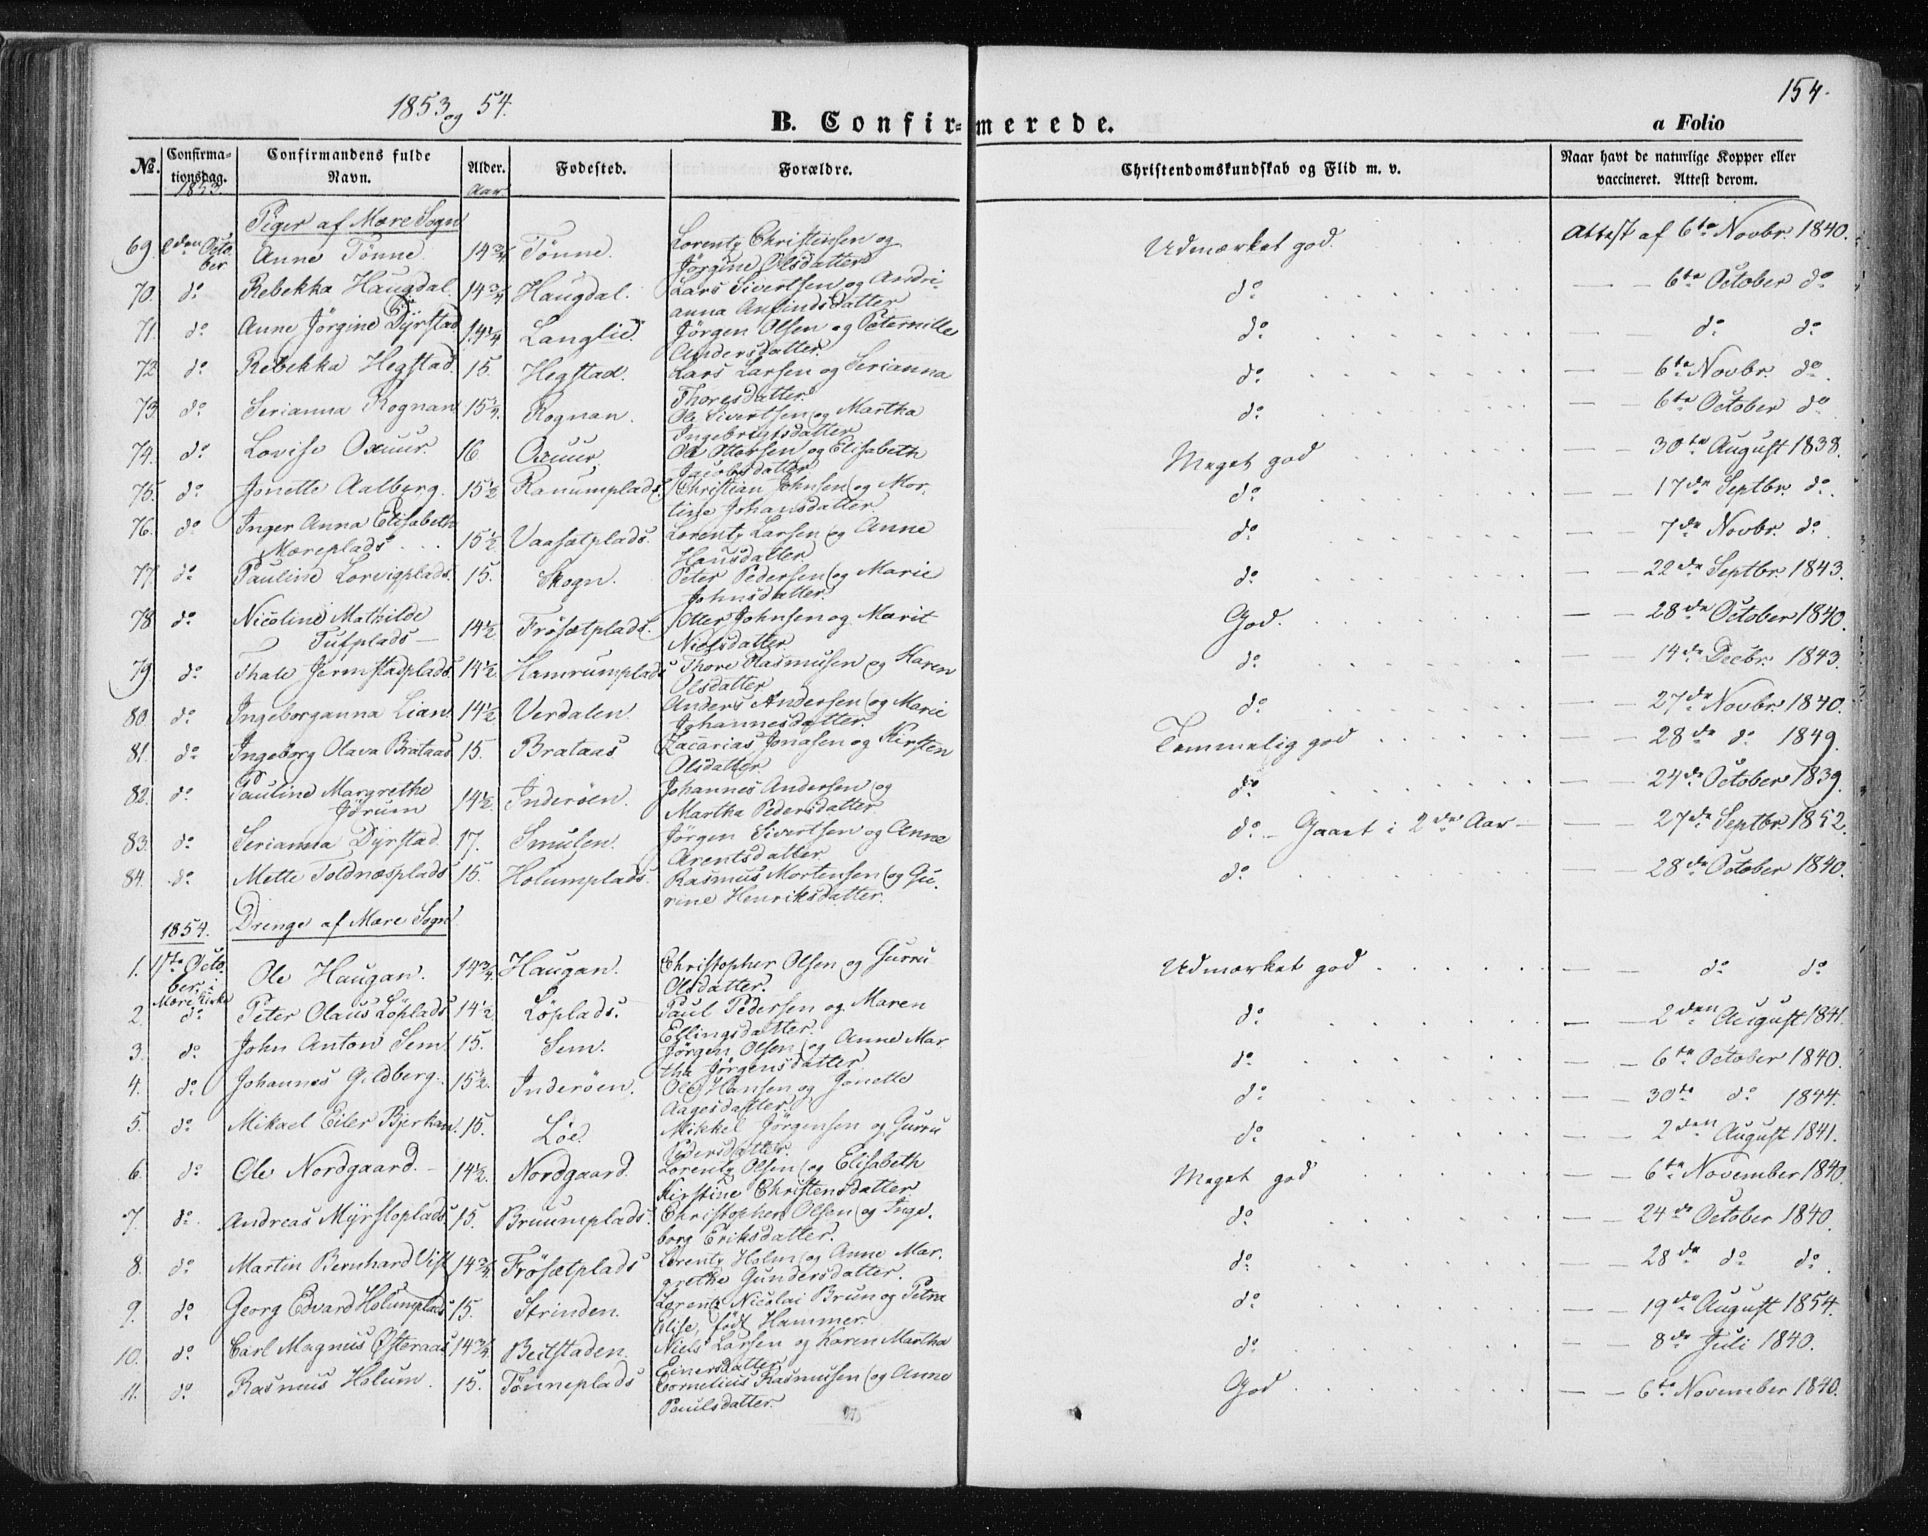 154.
1853 og 54.
B. Confirmerede.
a Folio
No. Confirmationsdag. Confirmandens fulde Navn. Alder. Fødested. Forældre. Christendomskundskab og Flid m. v. Naar havt de naturlige Kopper eller vaccineret. Attest derom.
1853. Aar
Piger af Mære Sogn
69. 2den October Anne Tønne. 14¾ Tønne. Lorentz Christensen og Jörgine Olsdatter Udmærket god. Attest af 6te Novbr. 1840.
70. do Rebekka Haugdal. 14¾ Haugdal. Lars Sivertsen og Andrianna Anfindsdatter do — — 6te October do
71. do Anne Jörgine Dÿrstad 14¼ Langlie. Jörgen Olsen og Peternille Andersdatter. do — do do
72. do Rebekka Hegstad. 15. Hegstad. Lars Larsen og Serianna Thoresdatter do — — 6te Novbr. do.
73. do Serianna Rognan. 15½. Rognan. Ole Sivertsen og Martha Ingebrigtsdatter do — — 6te October do
74. do Lovise Oxuur. 16 Oxuur Ole Ottersen og Elisabeth Jacobsdatter Meget god — — 30te August 1838.
75. do Jonette Aalberg. 15½ Ranumplads. Christian Johnsen og Morlise Johansdatter do — — 17de Septbr. do.
76. do Inger Anna Elisabeth Mæreplads 15½ Vaasætplads. Lorentz Larsen og Anne Hansdatter do — — 7de Novbr. do.
77. do Pauline Lorvigplads. 15. Skogn. Peter Pedersen og Marie Johnsdatter. do — — 22de Septbr. 1843.
78 do Nicoline Mathilde Tufplads — 14½ Frösætplads. Otter Johnsen og Marit Nielsdatter God. — — 28de October 1840.
79 do Thale Jermstadplads 14½. Hamrumplads Thore Rasmusen og Karen Olsdatter do — — 14de Decbr. 1843.
80. do Ingeborganna Lian 14½ Verdalen. Anders Andersen og Marie Johannesdatter. do — — 27de Novbr. 1840.
81. do Ingeborg Olava Brataas 15. Brataas Zacarias Jonasen og Kirsten Olsdatter Temmelig god — — 28de do 1849.
82. do Pauline Margrethe Jörum 14½. Inderöen. Johannes Andersen og Martha Pedersdatter do — — 24de October 1839.
83. do Serianna Dÿrstad. 17. Smulen. Jörgen Sivertsen og Anne Arentsdatter do — Gaaet i 2det Aar — — — 27de Septbr. 1852.
84. do Mette Toldnæsplads 15. Holumplads. Rasmus Mortensen og Gurine Henriksdatter. do — — 28de October 1840.
1854. Drenge af Mære Sogn
1. 1ste October i Mære Kirke Ole Haugan. 14¾. Haugan. Christopher Olsen og Gurru Olsdatter. Udmærket god — — do do
2. do Peter Olaus Löplads 14½ Löplads. Paul Pedersen og Maren Ellingsdatter. do — — 2den August 1841.
3. do John Anton Sem. 15. Sem. Jörgen Olsen og Anne Martha Jörgensdatter do — — 6te October 1840.
4. do Johannes Gildberg. 15½. Inderöen. Ole Hansen og Jonette Aagesdatter. do — — 30te do 1844.
5. do Mikael Eiler Bjerkan. 15. Löe. Mikkel Jörgensen og Gurru Pedersdatter. do — — 2den August 1841.
6. do Ole Nordgaard. — 14½. Nordgaard. Lorentz Olsen og Elisabeth Kirstine Christensdatter Meget god — — 6te November 1840.
7. do Andreas Mÿrstoplads 15. Bruumplads. Christopher Olsen og Ingeborg Eriksdatter. do — — 24de October 1840.
8. do Martin Bernhard Vist 14¾. Frösætplads Lorentz Holm og Anne Margrethe Gundersdatter. do — — 28de do do.
9. do Georg Edvard Holumplads 15. Strinden. Lorentz Nicolai Brun og Petra Elise, født Hammer. do — — 19de August 1854.
10. do Carl Magnus Østeraas 14¾. Beitstaden. Niels Larsen og Karen Martha Einersdatter do — — 8de Juli 1840.
11. do Rasmus Holum. 15. Tönneplads Cornelius Rasmusen og Anne Paulsdatter. God — — 6te November 1840.